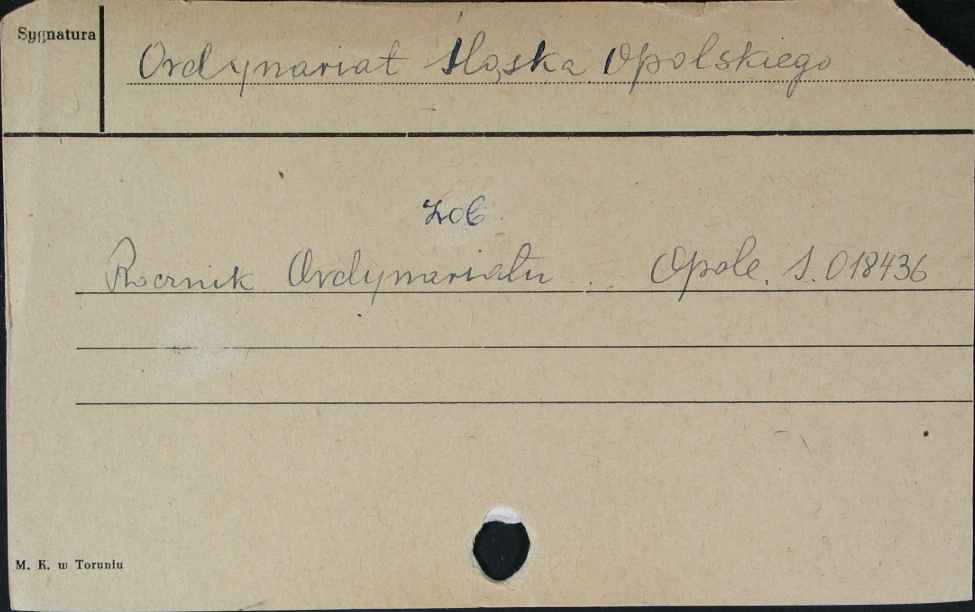 Sygnatura
Ordynariat Śląska Opolskiego
Zob.
Rocznik Ordynariatu .. Opole. S. 018436
M. K. w Toruniu